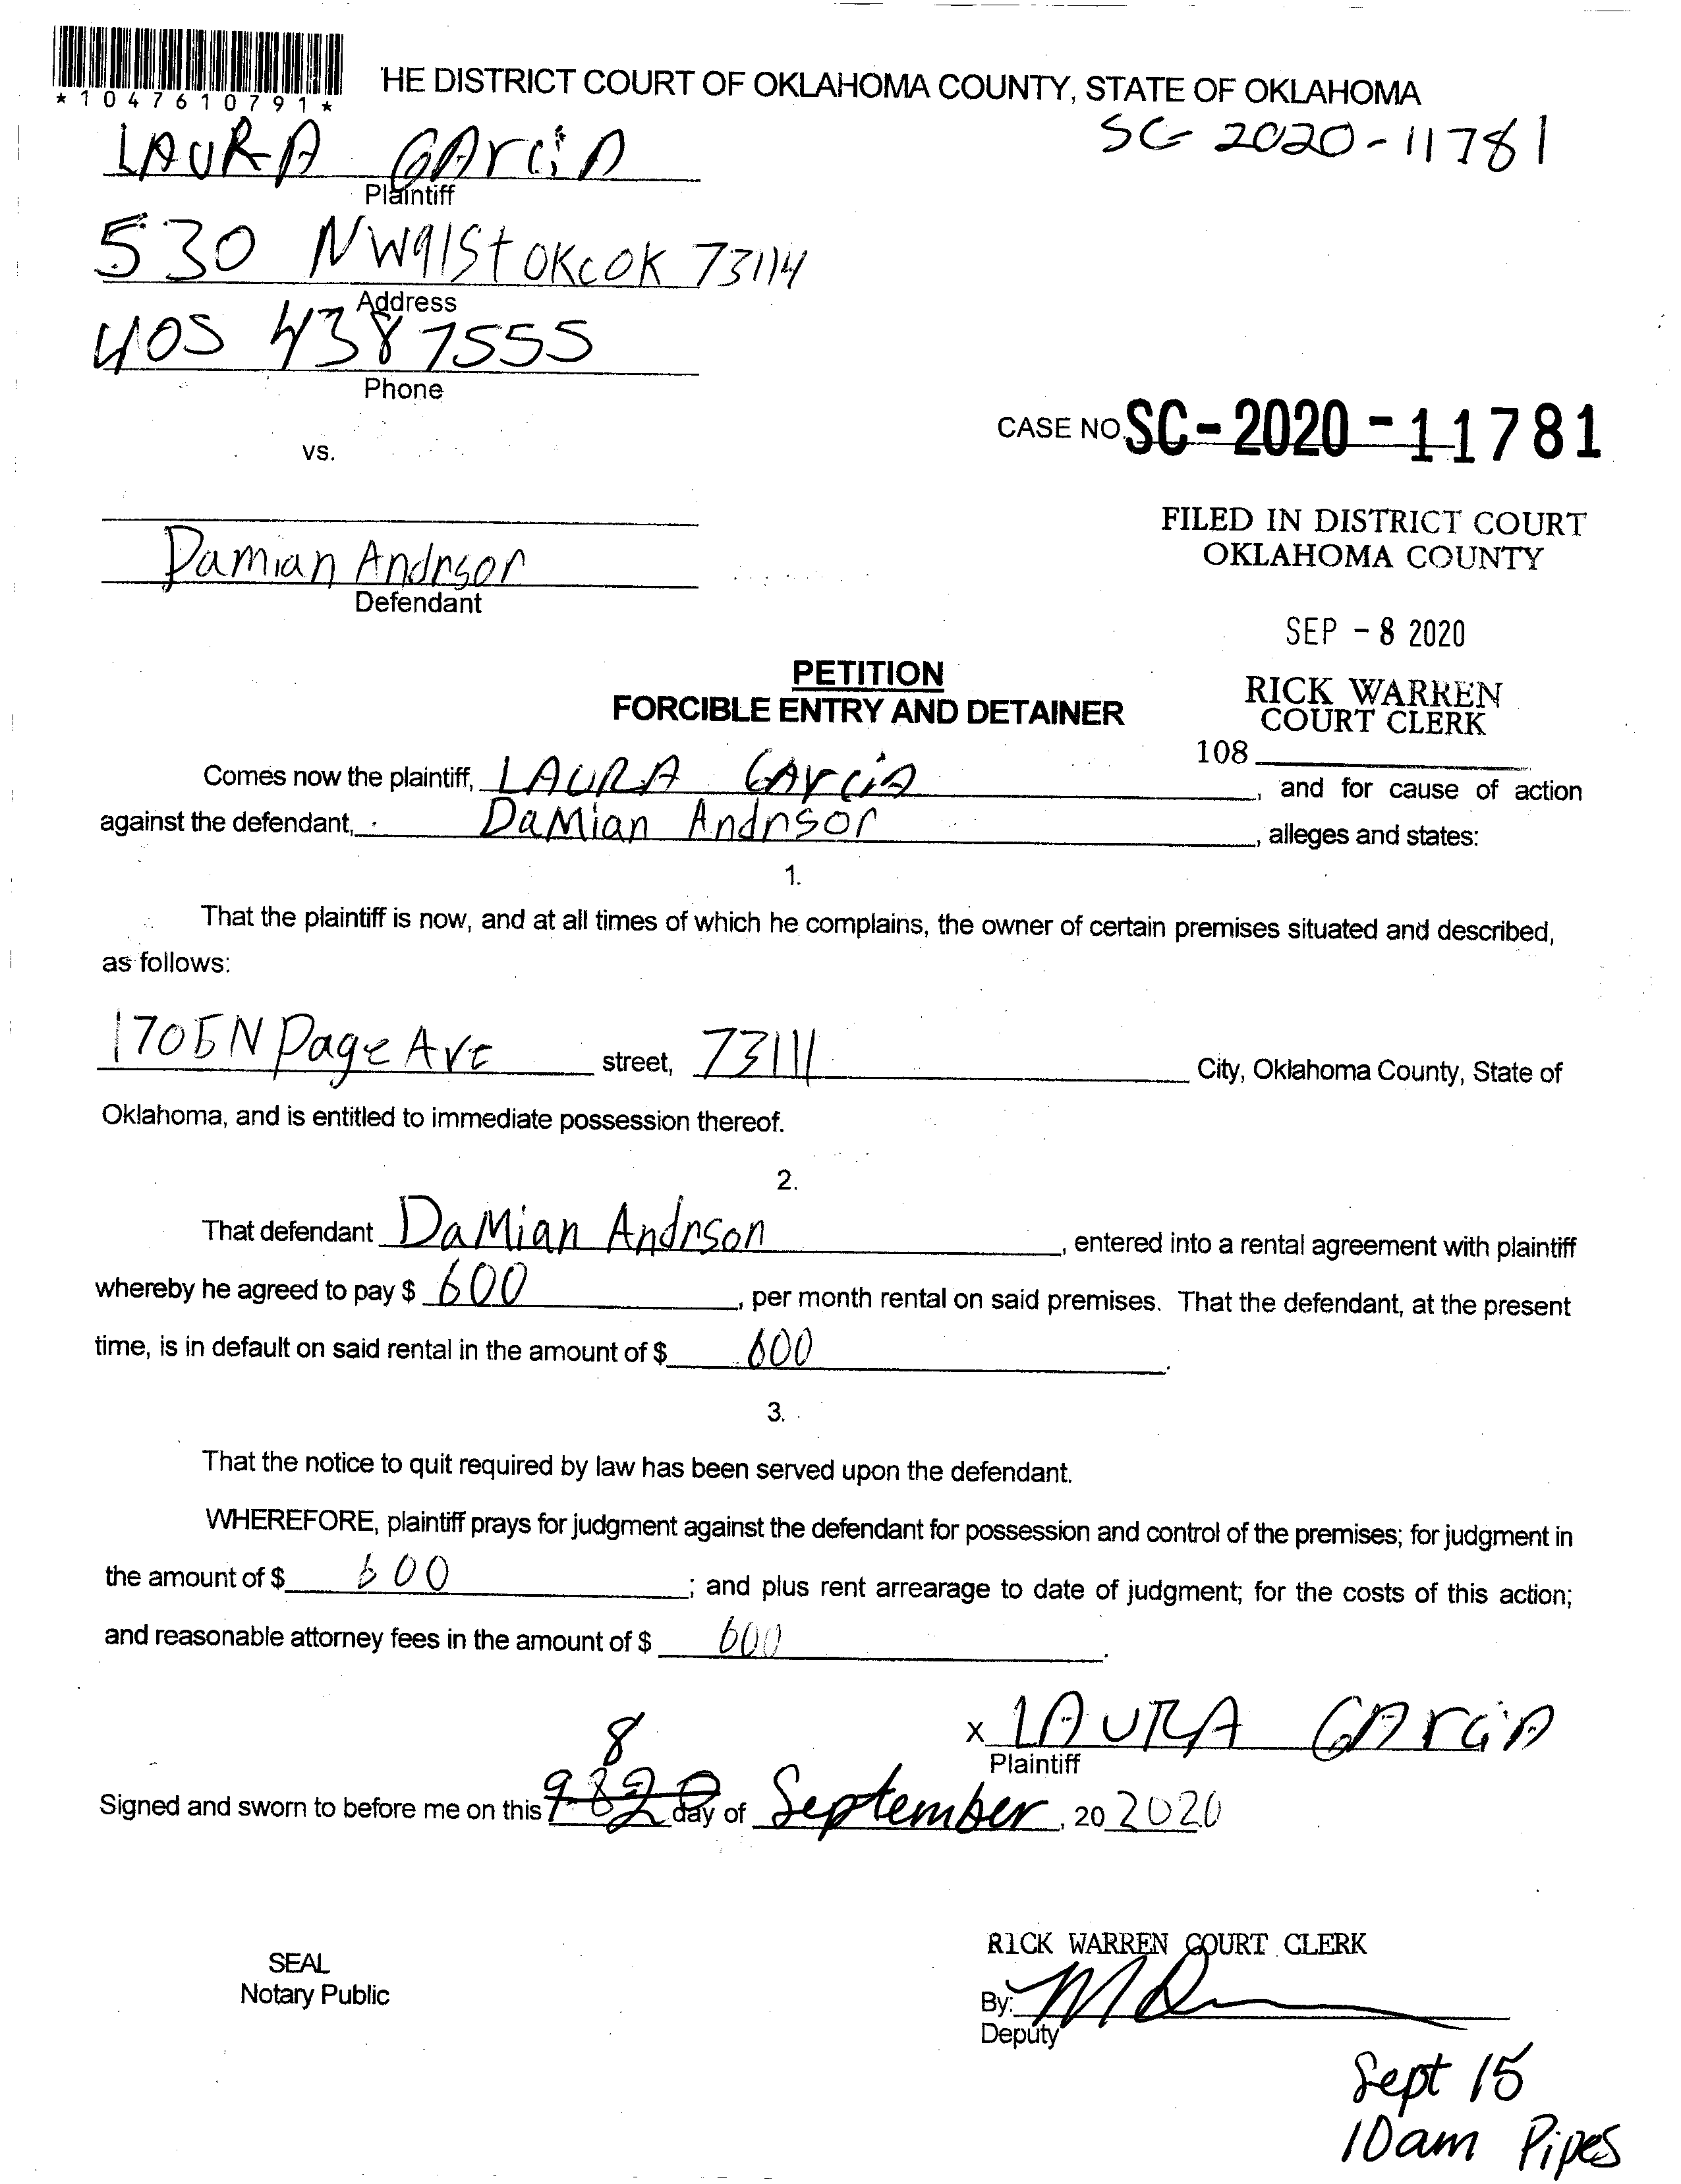 *1047610791*
'HE DISTRICT COURT OF OKLAHOMA COUNTY, STATE OF OKLAHOMA
SC-2020-11781
LAURA GArciA
Plaintiff
530 NW91St OKC OK 73114
Address
405 438 7555
Phone
CASE NO. SC-2020-11781
vs.
FILED IN DISTRICT COURT
OKLAHOMA COUNTY
Damian Andrson
Defendant
SEP -8 2020
PETITION
FORCIBLE ENTRY AND DETAINER
RICK WARREN
COURT CLERK
108
Comes now the plaintiff, LAURA GArciA, and for cause of action
against the defendant, DaMian Andrson, alleges and states:
1.
That the plaintiff is now, and at all times of which he complains, the owner of certain premises situated and described,
as follows:
1705 N Page Ave street, 73111 City, Oklahoma County, State of
Oklahoma, and is entitled to immediate possession thereof.
2.
That defendant DaMian Andrson, entered into a rental agreement with plaintiff
whereby he agreed to pay $ 600, per month rental on said premises. That the defendant, at the present
time, is in default on said rental in the amount of $ 600.
3.
That the notice to quit required by law has been served upon the defendant.
WHEREFORE, plaintiff prays for judgment against the defendant for possession and control of the premises; for judgment in
the amount of $ 600; and plus rent arrearage to date of judgment; for the costs of this action;
and reasonable attorney fees in the amount of $ 600.
x LAURA GArciA
Plaintiff
8
Signed and sworn to before me on this day of September, 20 2020
RICK WARREN COURT CLERK
SEAL
Notary Public
By:
Deputy
Sept 15
10am Pipes